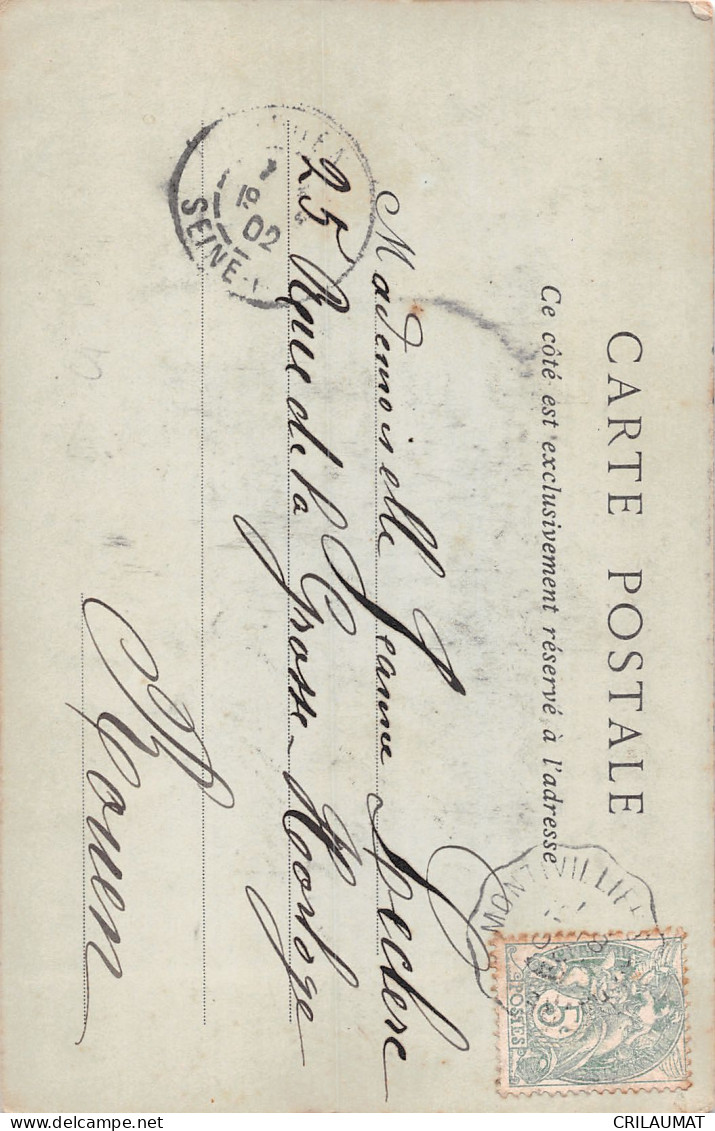 CARTE POSTALE
Ce côté est exclusivement réservé à l'adresse
MONTIVILLIE
5
POSTES
Mademoiselle Jeanne Leclerc
25 Rue de la Grosse-Horloge
Rouen
19
02
SEINE
CRILAUMAT